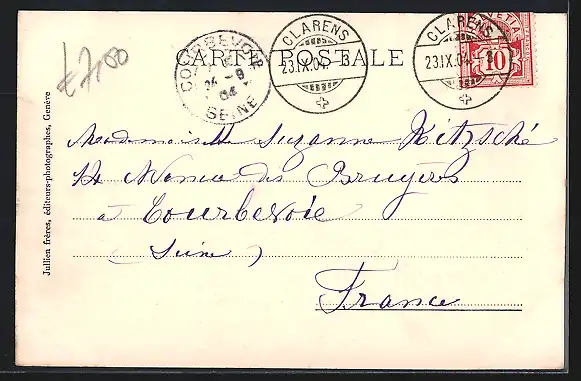 €7,00
COURBEVOIE
24-9
04
SEINE
CLARENS
23.IX.04
CLARENS
23.IX.04
HELVETIA
10
CARTE POSTALE
Mademoiselle Suzanne Kitzsché
14 Avenue des Bruyères
à Courbevoie
(Seine)
France
Jullien frères, éditeurs-photographes, Genève